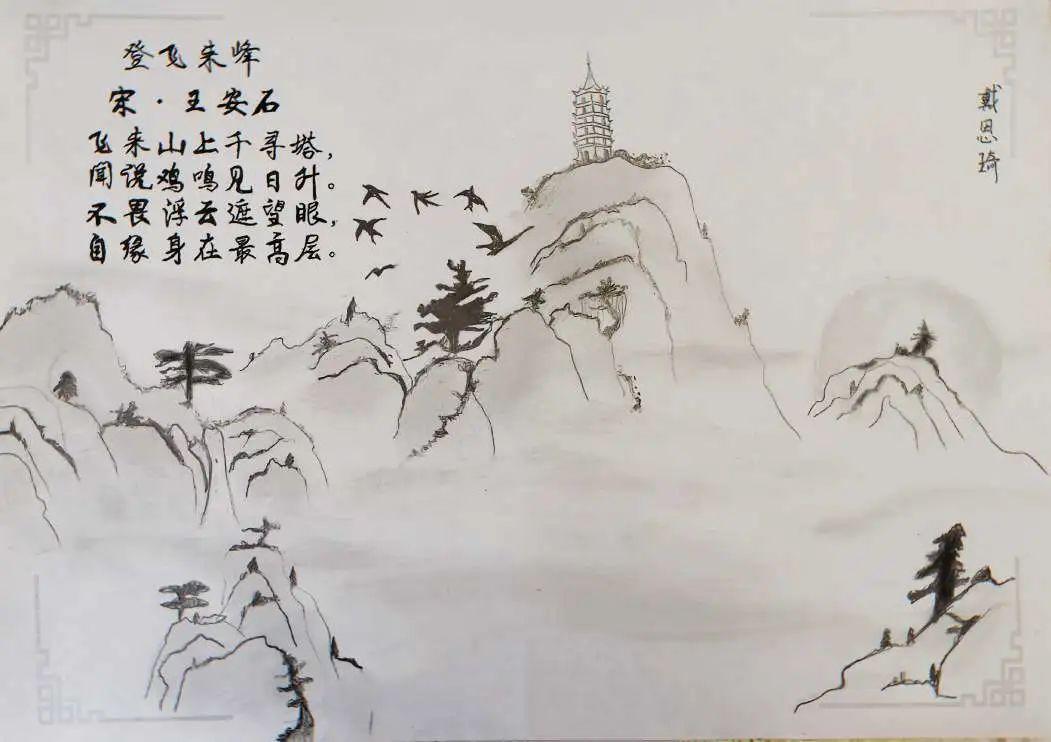 登飞来峰
宋·王安石
飞来山上千寻塔，
闻说鸡鸣见日升。
不畏浮云遮望眼，
自缘身在最高层。
戴恩琦